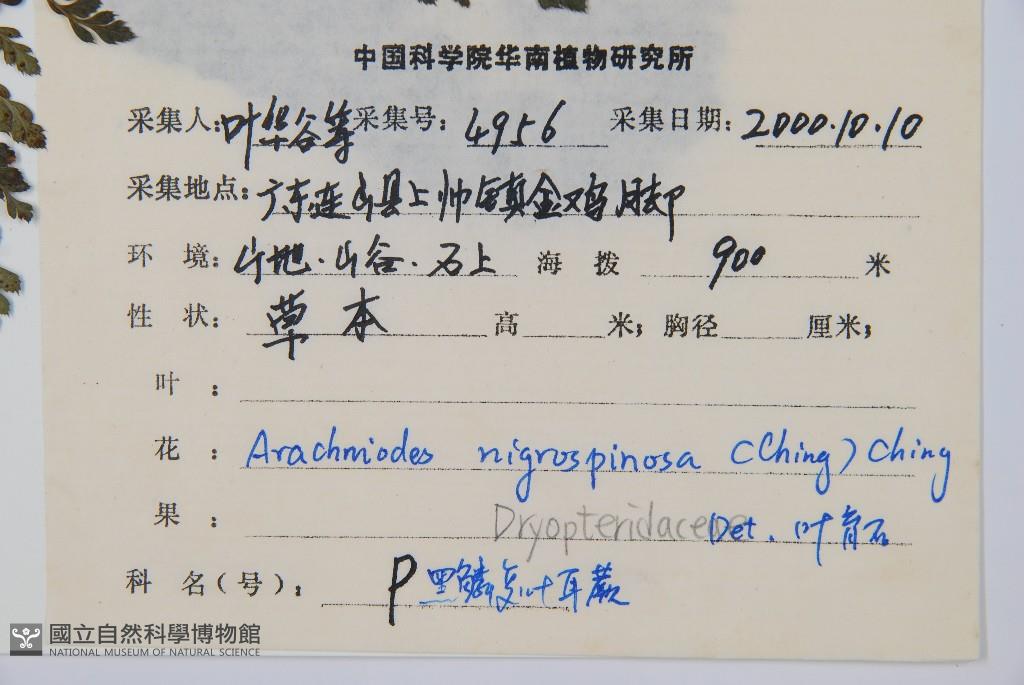 中国科学院华南植物研究所
采集人:叶华谷等 采集号: 4956 采集日期: 2000.10.10
采集地点: 广东连山县上帅镇金鸡脚
环 境: 山地.山谷.石上 海 拨 900 米
性 状: 草本 高 米; 胸径 厘米;
叶 :
花 : Arachniodes nigrospinosa (Ching) Ching
果 : Dryopteridaceae Det. 叶育石
科 名(号): P 黑鳞复叶耳蕨
國立自然科學博物館
NATIONAL MUSEUM OF NATURAL SCIENCE